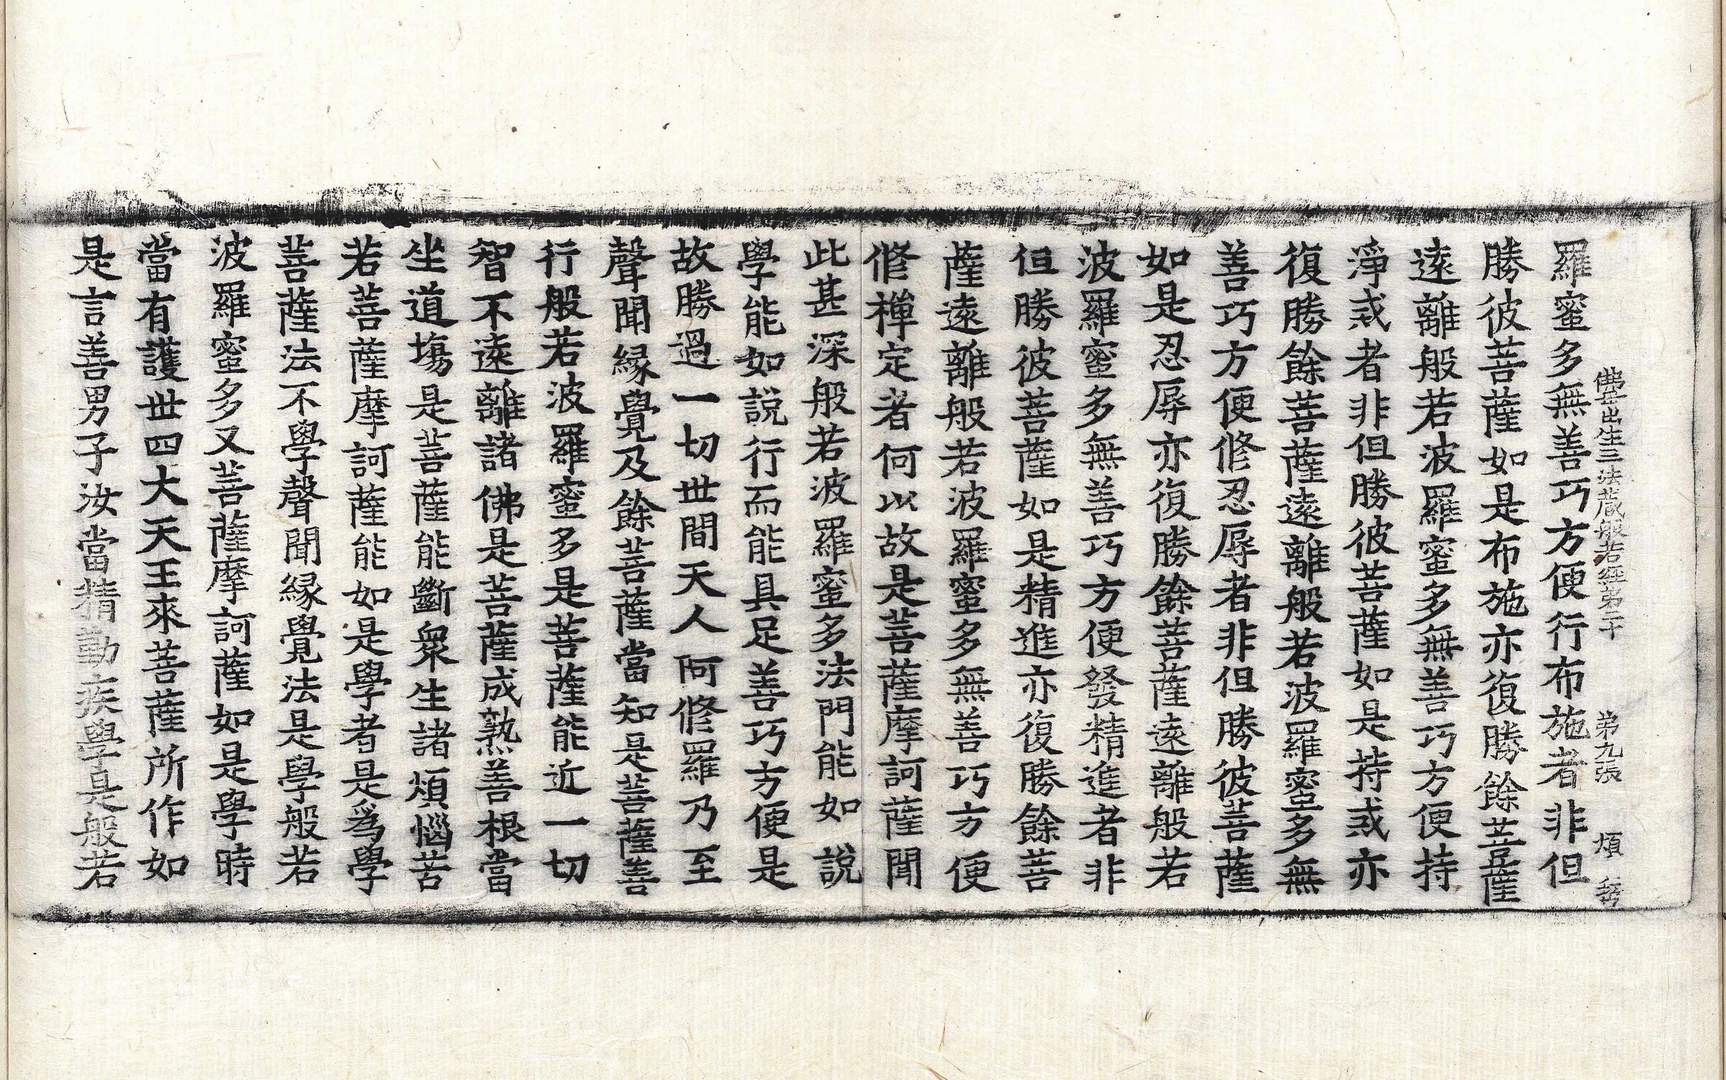 佛母出生三法藏般若經第二十 第九張 煩
羅蜜多無善巧方便行布施者非但
勝彼菩薩如是布施亦復勝餘菩薩
遠離般若波羅蜜多無善巧方便持
淨戒者非但勝彼菩薩如是持戒亦
復勝餘菩薩遠離般若波羅蜜多無
善巧方便修忍辱者非但勝彼菩薩
如是忍辱亦復勝餘菩薩遠離般若
波羅蜜多無善巧方便發精進者非
但勝彼菩薩如是精進亦復勝餘菩
薩遠離般若波羅蜜多無善巧方便
修禪定者何以故是菩薩摩訶薩聞
此甚深般若波羅蜜多法門能如說
學能如說行而能具足善巧方便是
故勝過一切世間天人阿修羅乃至
聲聞緣覺及餘菩薩當知是菩薩善
行般若波羅蜜多是菩薩能近一切
智不遠離諸佛是菩薩成熟善根當
坐道場是菩薩能斷衆生諸煩惱苦
若菩薩摩訶薩能如是學者是爲學
菩薩法不學聲聞緣覺法是學般若
波羅蜜多又菩薩摩訶薩如是學時
當有護世四大天王來菩薩所作如
是言善男子汝當精勤疾學是般若